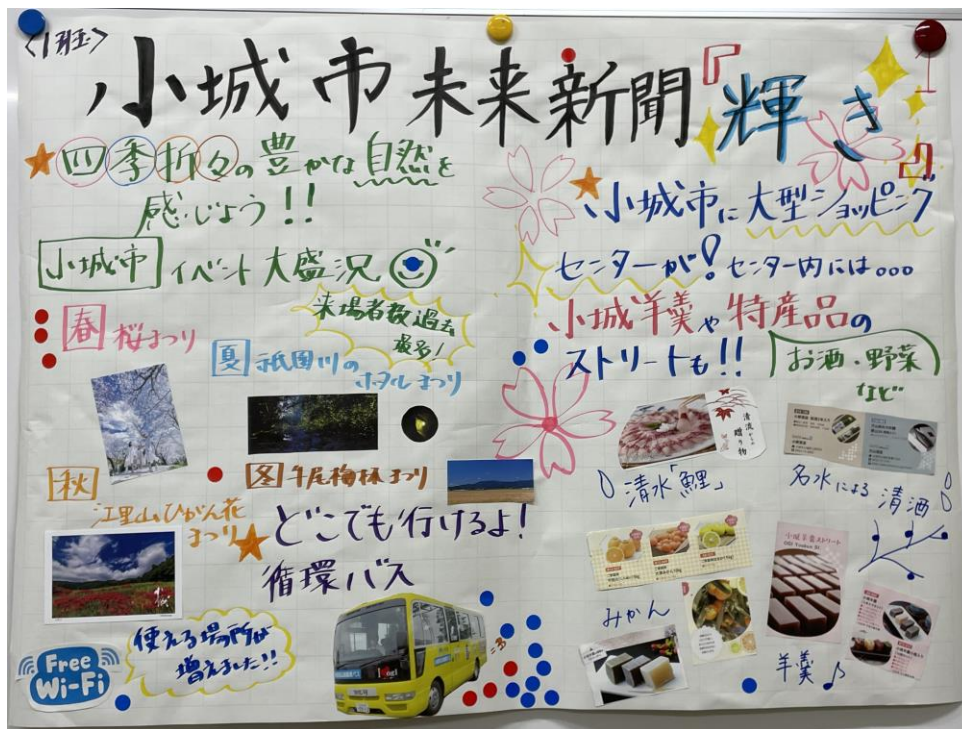 〈1班〉
小城市未来新聞『輝き』
四季折々の豊かな自然を
感じよう!!
小城市 イベント大盛況
来場者数過去
最多!
春 桜まつり
夏 祇園川の
ホタルまつり
秋
江里山ひがん花
まつり
冬 牛尾梅林まつり
どこでも行けるよ!
循環バス
Free
Wi-Fi
使える場所が
増えました!!
小城市に大型ショッピング
センターが! センター内には。。。
小城羊羹や特産品の
ストリートも!!
お酒・野菜
など
清流からの
贈り物
清水「鯉」
名水による清酒
みかん
小城羊羹ストリート
羊羹♪